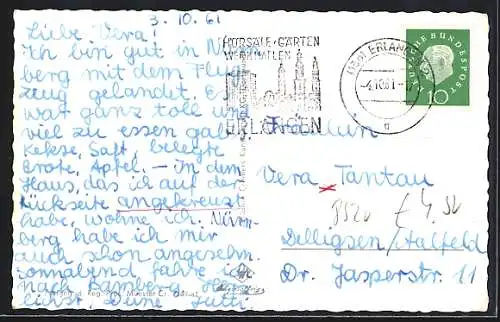 3.10.61
Liebe Vera!
Ich bin gut in Nürn-
berg mit dem Flug-
zeug gelandet. Es
war ganz toll und
viel zu essen gab
Kekse, Saft, belegte
Brote, Äpfel. – In dem
Haus, das ich auf der
Rückseite angekreuzt
habe, wohne ich. Nürn-
berg habe ich mir
auch schon angesehn.
Sonnabend fahre ich
nach Bamberg.
lichst, Deine Jutti
HÖRSÄLE · GÄRTEN
WERKHALLEN
ERLANGEN
ERLANGEN
DEUTSCHE BUNDESPOST
10
Fräulein
Vera Tantau
Delligsen/Halfeld
Dr. Jasperstr. 11